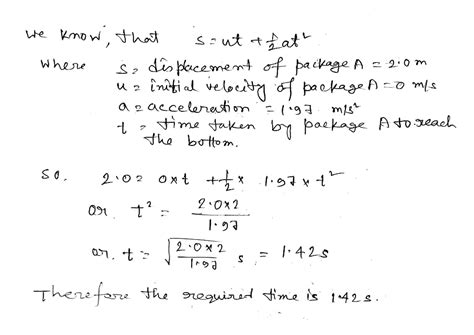 we know, that s = ut + ½at²
where s = dispacement of package A = 2.0 m
u = initial velocity of package A = 0 m/s
a = acceleration = 1.97 m/s²
t = time taken by package A to reach
the bottom.
So, 2.0 = 0xt + ½ x 1.97 x t²
or, t² = 2.0x2 / 1.97
or, t = √(2.0x2 / 1.97) s = 1.42s
Therefore the required time is 1.42 s.